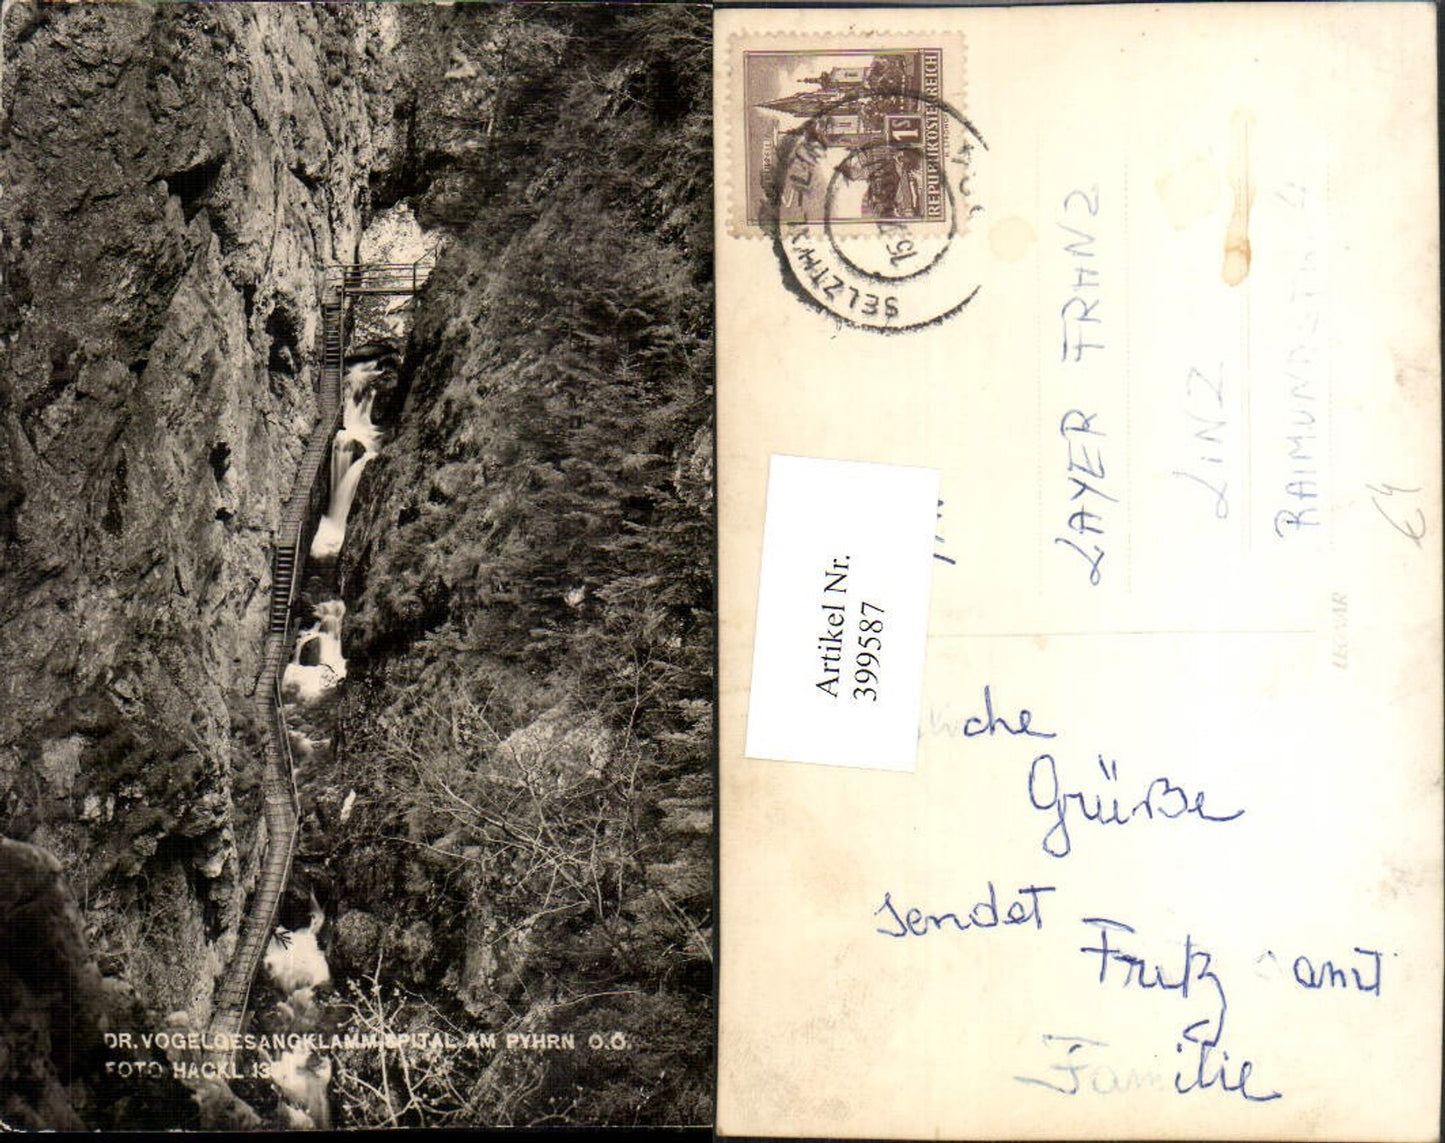 DR. VOGELGESANGKLAMM, SPITAL AM PYHRN O.Ö.
FOTO HACKL 13
REPUBLIK ÖSTERREICH
1S
SELZTHAL-LINZ
Artikel Nr.
399587
LAYER FRANZ
LINZ
RAIMUNDSTR. 4
€4
che
Grüße
sendet
Fritz samt
Familie